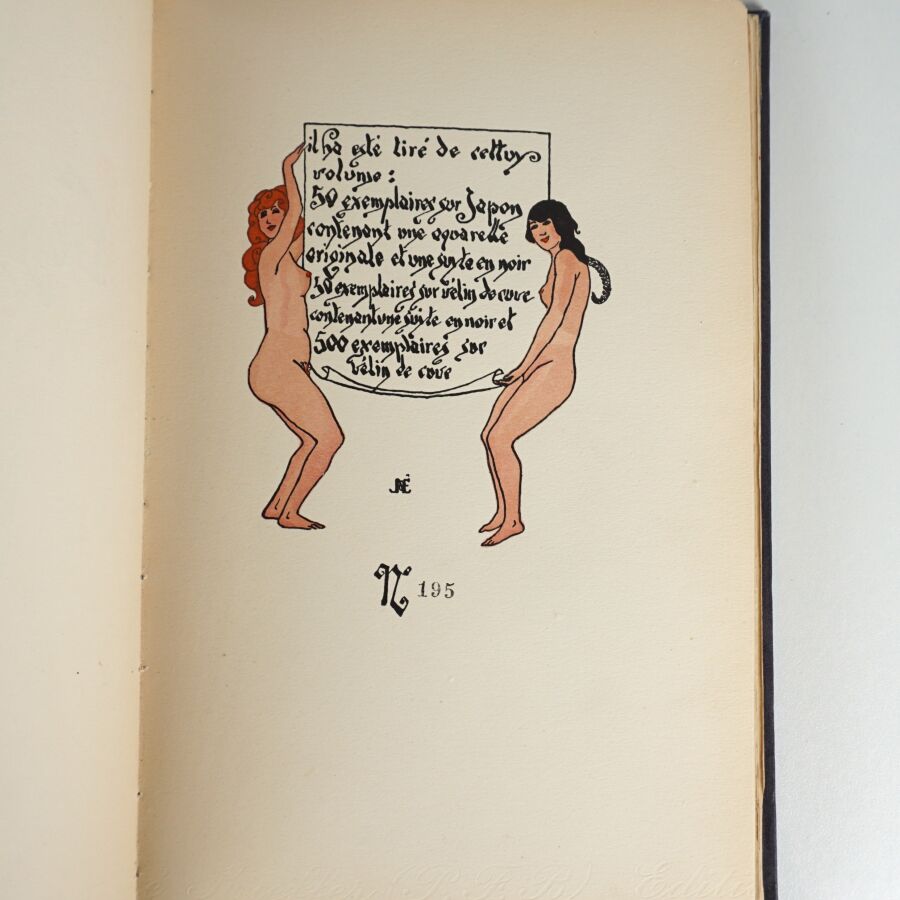 il ha esté tiré de cettuy
volume :
50 exemplaires sur Japon
contenant une aquarelle
originale et une suyte en noir
50 exemplaires sur vélin de cuve
contenant une suite en noir et
500 exemplaires sur
vélin de cuve
N 195